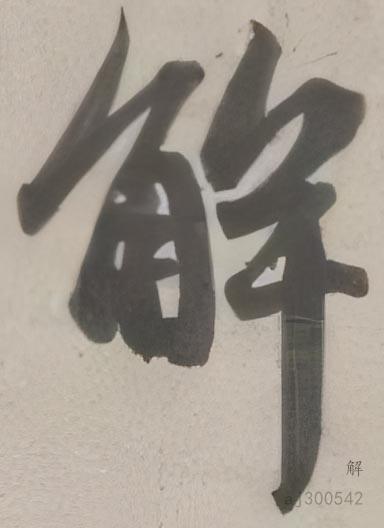 解
解
aj300542